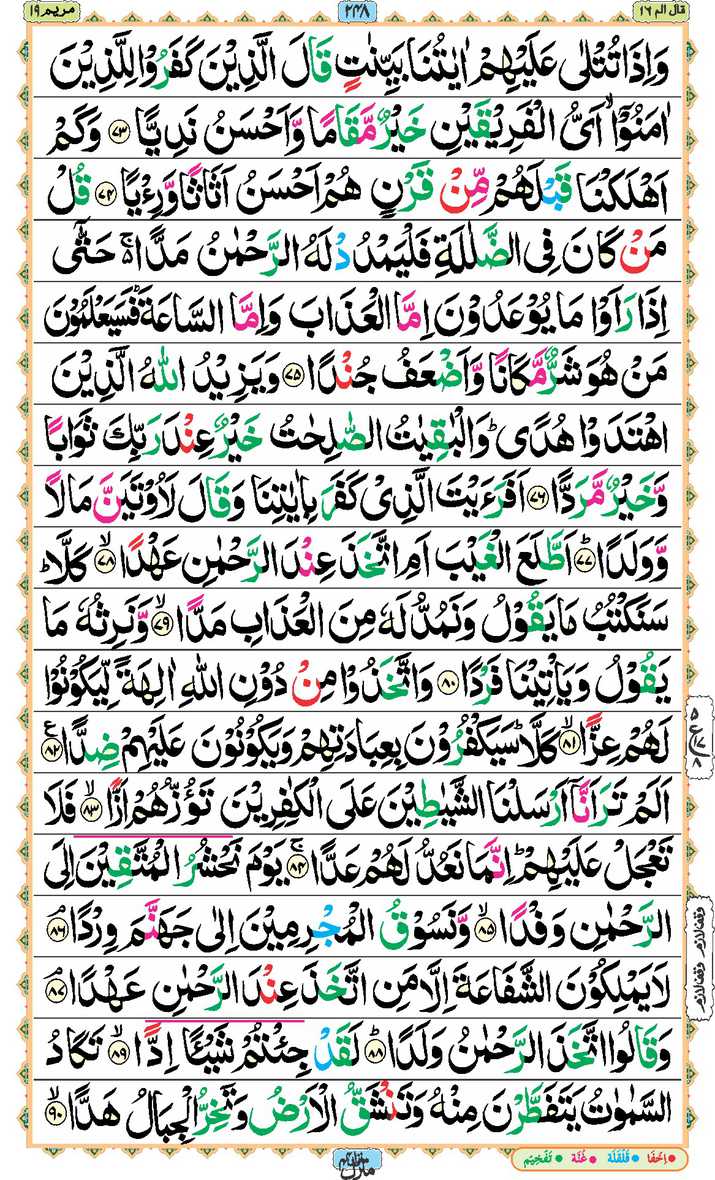 قال الم ١٦
٢٤٨
مريم ١٩
وَاِذَا تُتْلٰى عَلَيْهِمْ اٰيٰتُنَا بَيِّنٰتٍ قَالَ الَّذِيْنَ كَفَرُوْا لِلَّذِيْنَ
اٰمَنُوْۤا ۙ اَىُّ الْفَرِيْقَيْنِ خَيْرٌ مَّقَامًا وَّاَحْسَنُ نَدِيًّا ﴿۷۳﴾ وَكَمْ
اَهْلَكْنَا قَبْلَهُمْ مِّنْ قَرْنٍ هُمْ اَحْسَنُ اَثَاثًا وَّرِءْيًا ﴿۷۴﴾ قُلْ
مَنْ كَانَ فِى الضَّلٰلَةِ فَلْيَمْدُدْ لَهُ الرَّحْمٰنُ مَدًّا ۚ۬ حَتّٰۤى
اِذَا رَاَوْا مَا يُوْعَدُوْنَ اِمَّا الْعَذَابَ وَاِمَّا السَّاعَةَ ؕ فَسَيَعْلَمُوْنَ
مَنْ هُوَ شَرٌّ مَّكَانًا وَّاَضْعَفُ جُنْدًا ﴿۷۵﴾ وَيَزِيْدُ اللّٰهُ الَّذِيْنَ
اهْتَدَوْا هُدًى ؕ وَالْبٰقِيٰتُ الصّٰلِحٰتُ خَيْرٌ عِنْدَ رَبِّكَ ثَوَابًا
وَّخَيْرٌ مَّرَدًّا ﴿۷۶﴾ اَفَرَءَيْتَ الَّذِىْ كَفَرَ بِاٰيٰتِنَا وَقَالَ لَاُوْتَيَنَّ مَالًا
وَّوَلَدًا ؕ﴿۷۷﴾ اَطَّلَعَ الْغَيْبَ اَمِ اتَّخَذَ عِنْدَ الرَّحْمٰنِ عَهْدًا ۙ﴿۷۸﴾ كَلَّا ؕ
سَنَكْتُبُ مَا يَقُوْلُ وَنَمُدُّ لَهٗ مِنَ الْعَذَابِ مَدًّا ۙ﴿۷۹﴾ وَّنَرِثُهٗ مَا
يَقُوْلُ وَيَاْتِيْنَا فَرْدًا ﴿۸۰﴾ وَاتَّخَذُوْا مِنْ دُوْنِ اللّٰهِ اٰلِهَةً لِّيَكُوْنُوْا
لَهُمْ عِزًّا ۙ﴿۸۱﴾ كَلَّا ؕ سَيَكْفُرُوْنَ بِعِبَادَتِهِمْ وَيَكُوْنُوْنَ عَلَيْهِمْ ضِدًّا ﴿۸۲﴾ ع
اَلَمْ تَرَ اَنَّاۤ اَرْسَلْنَا الشَّيٰطِيْنَ عَلَى الْكٰفِرِيْنَ تَؤُزُّهُمْ اَزًّا ۙ﴿۸۳﴾ فَلَا
تَعْجَلْ عَلَيْهِمْ ؕ اِنَّمَا نَعُدُّ لَهُمْ عَدًّا ۚ﴿۸۴﴾ يَوْمَ نَحْشُرُ الْمُتَّقِيْنَ اِلَى
الرَّحْمٰنِ وَفْدًا ۙ﴿۸۵﴾ وَّنَسُوْقُ الْمُجْرِمِيْنَ اِلٰى جَهَنَّمَ وِرْدًا ۘ﴿۸۶﴾
لَا يَمْلِكُوْنَ الشَّفَاعَةَ اِلَّا مَنِ اتَّخَذَ عِنْدَ الرَّحْمٰنِ عَهْدًا ۘ﴿۸۷﴾
وَقَالُوا اتَّخَذَ الرَّحْمٰنُ وَلَدًا ؕ﴿۸۸﴾ لَقَدْ جِئْتُمْ شَيْئًا اِدًّا ۙ﴿۸۹﴾ تَكَادُ
السَّمٰوٰتُ يَتَفَطَّرْنَ مِنْهُ وَتَنْشَقُّ الْاَرْضُ وَتَخِرُّ الْجِبَالُ هَدًّا ۙ﴿۹۰﴾
۵ ع ۱۷ ۸
وقف لازم وقف لازم
اِخفَا قَلقَلَه غُنَّه تَفخِيم